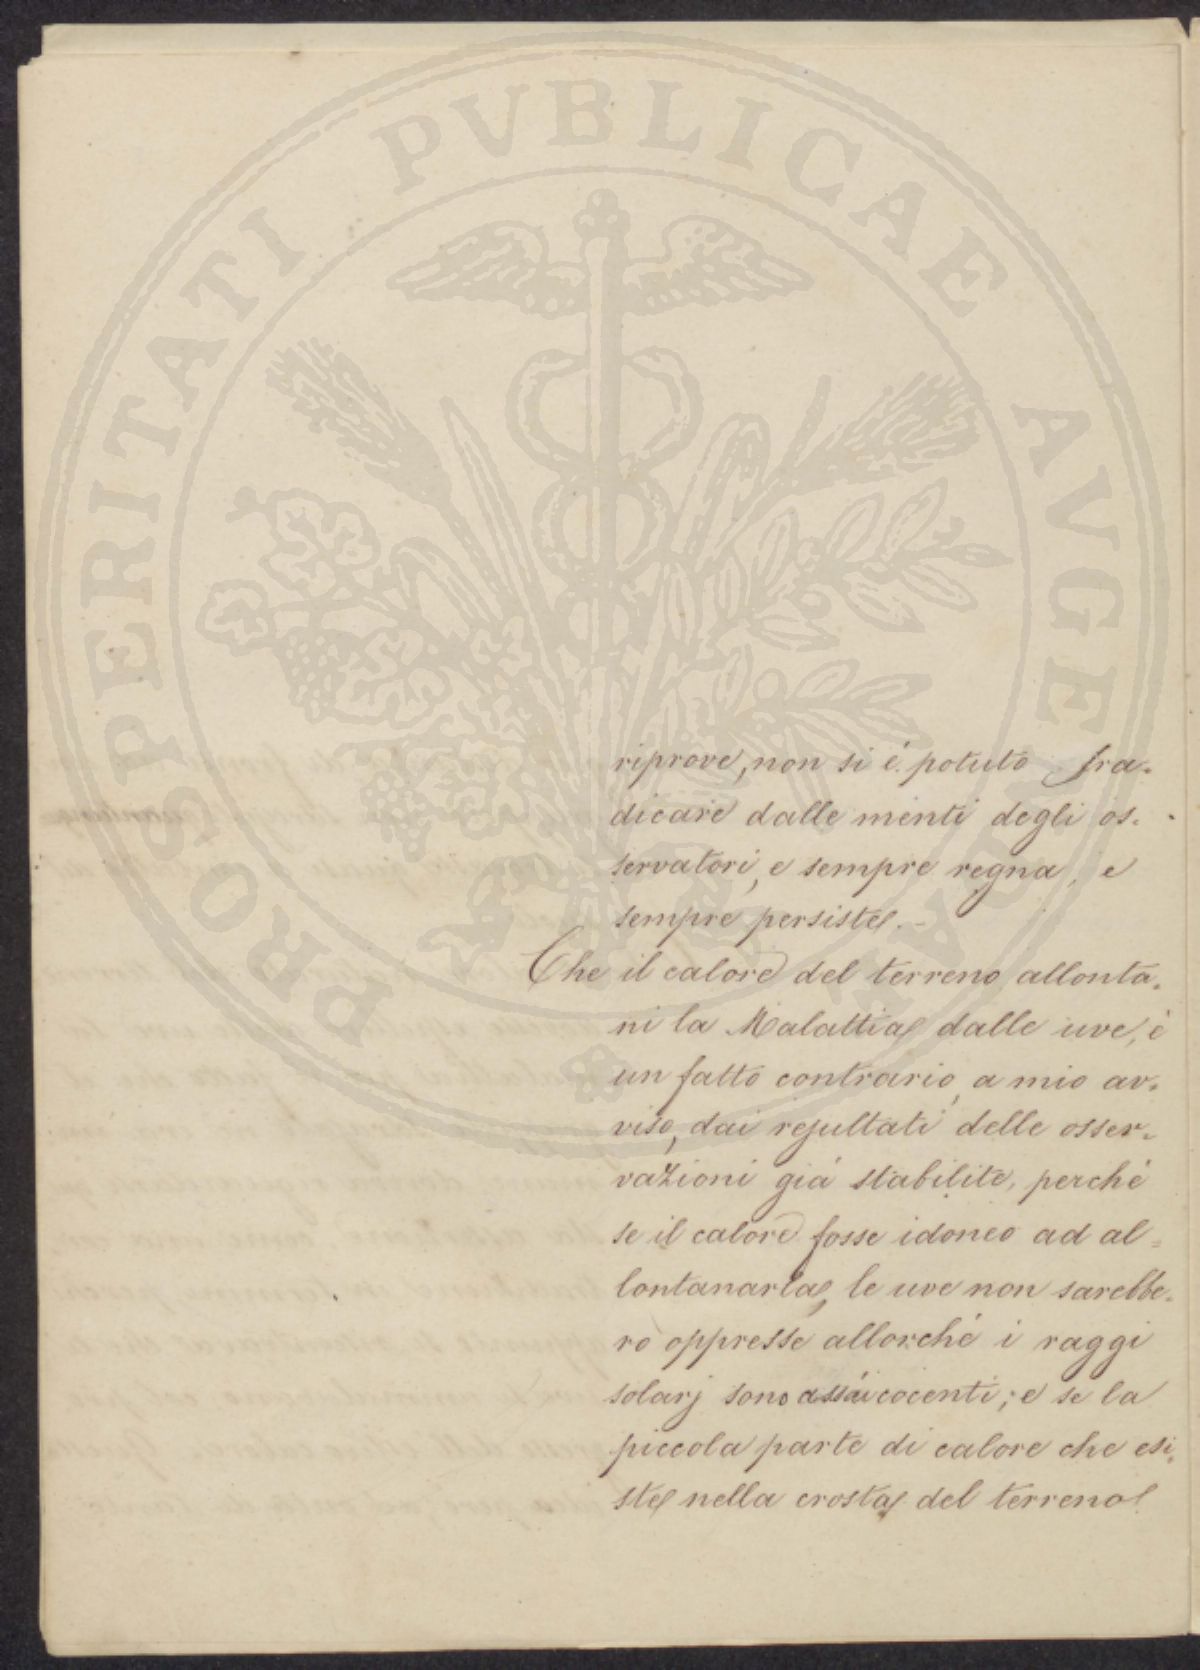 PROSPERITATI PVBLICAE AVGENDAE
riprove, non si è potuto sra-
dicare dalle menti degli os-
servatori, e sempre regna, e
sempre persiste. -
Che il calore del terreno allonta-
ni la Malattia dalle uve, è
un fatto contrario, a mio av-
viso, dai resultati delle osser-
vazioni già stabilite, perchè
se il calore fosse idoneo ad al-
lontanarla, le uve non sarebbe-
ro oppresse allorchè i raggi
solarj sono assai cocenti; e se la
piccola parte di calore che esi-
ste nella crosta del terreno